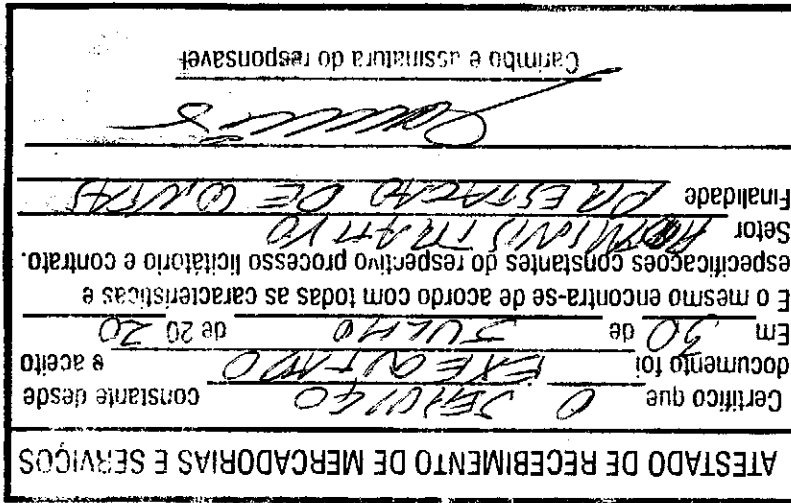 ATESTADO DE RECEBIMENTO DE MERCADORIAS E SERVIÇOS
Certifico que O SERVIÇO constante desde
documento foi EXEQUTADO e aceito
Em 30 de JULHO de 20 20
E o mesmo encontra-se de acordo com todas as características e
especificações constantes do respectivo processo licitátorio e contrato.
Setor ADMINISTRATIVO
Finalidade PRESTACAO DE CONTAS
Carimbo e assinatura do responsável